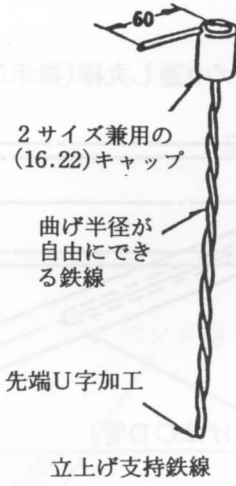 60
2サイズ兼用の
(16.22)キャップ
曲げ半径が
自由にでき
る鉄線
先端U字加工
立上げ支持鉄線